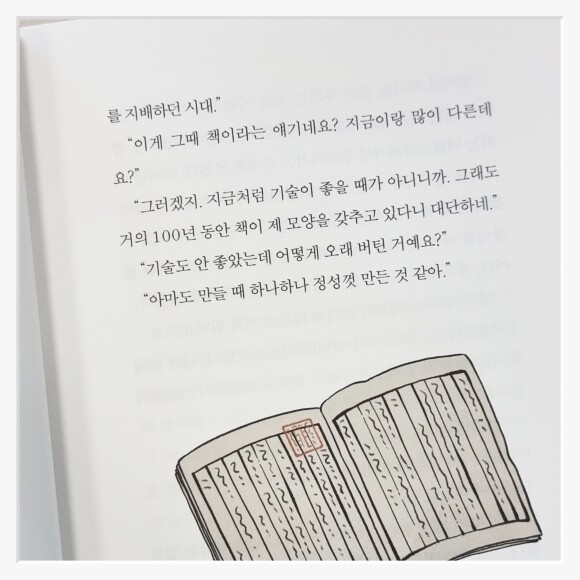 를 지배하던 시대.”
“이게 그때 책이라는 얘기네요? 지금이랑 많이 다른데
요?”
“그러겠지. 지금처럼 기술이 좋을 때가 아니니까. 그래도
거의 100년 동안 책이 제 모양을 갖추고 있다니 대단하네.”
“기술도 안 좋았는데 어떻게 오래 버틴 거예요?”
“아마도 만들 때 하나하나 정성껏 만든 것 같아.”